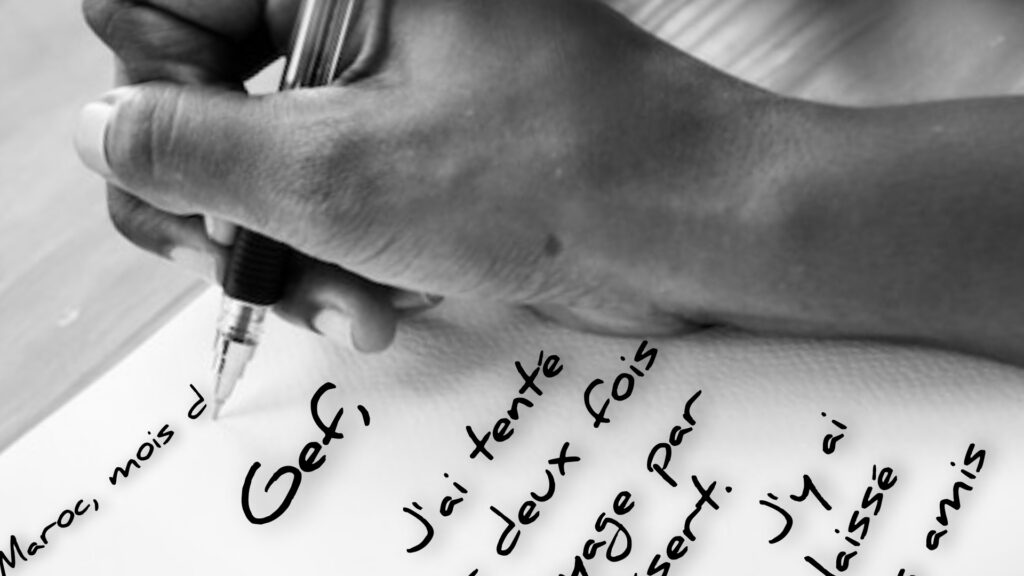 Maroc, mois d
Gef,
J'ai tenté
deux fois
yage par
sert.
J'y ai
laissé
amis